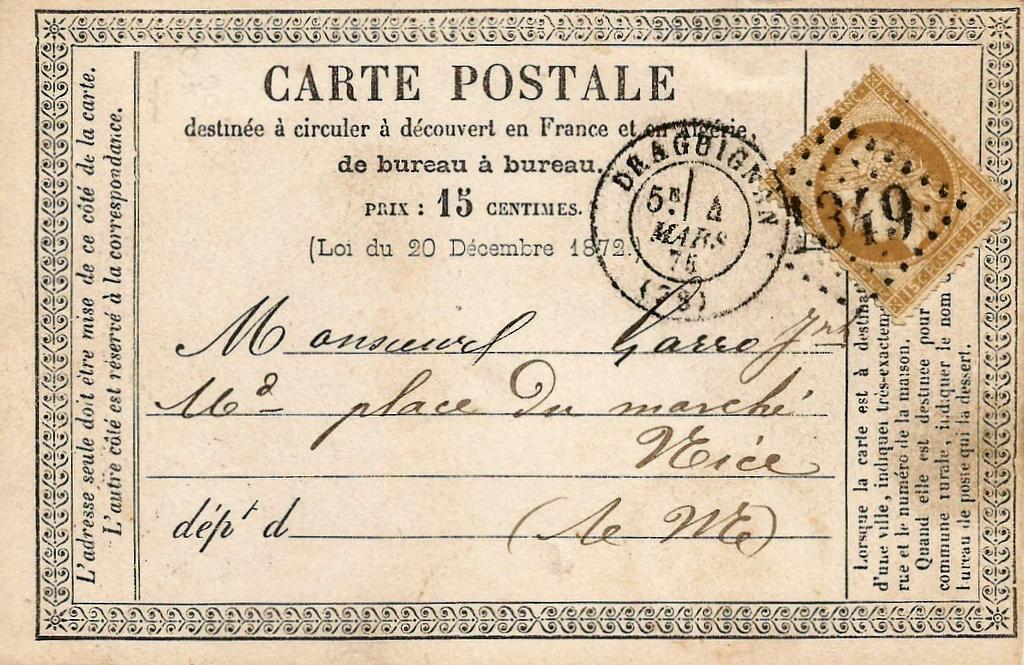 CARTE POSTALE
destinée à circuler à découvert en France et en Algérie,
de bureau à bureau.
PRIX : 15 CENTIMES.
(Loi du 20 Décembre 1872.
DRAGUIGNAN
5E 4
MARS
75
(78)
1349
15 C. POSTES 15 C.
Monsieur Garro Jne
Md place du marché
Nice
dépt d (Ae Me)
L'adresse seule doit être mise de ce côté de la carte.
L'autre côté est réservé à la correspondance.
Lorsque la carte est à destinat
d'une ville, indiquer très-exactem
rue et le numéro de la maison.
Quand elle est destinée pour
commune rurale, indiquer le nom
bureau de poste qui la dessert.